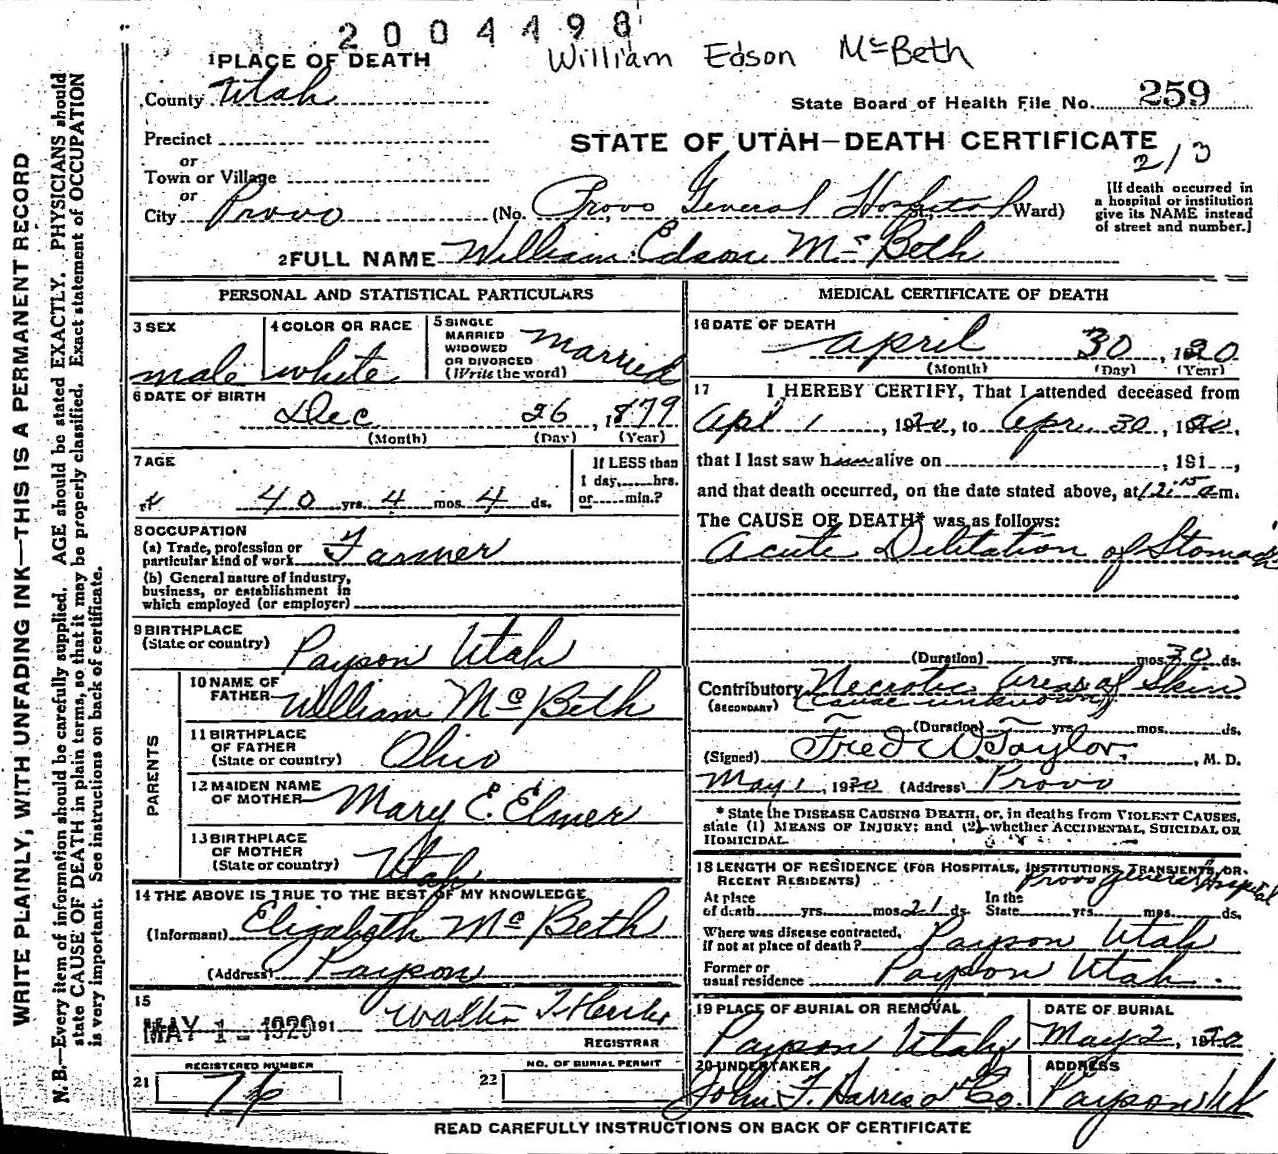 2004498
William Edson McBeth
1 PLACE OF DEATH
County Utah
State Board of Health File No. 259
Precinct
STATE OF UTAH—DEATH CERTIFICATE
213
or
Town or Village
or
City Provo (No. Provo General Hospital St., Ward)
[If death occurred in a hospital or institution give its NAME instead of street and number.]
2 FULL NAME William Edson McBeth
PERSONAL AND STATISTICAL PARTICULARS
3 SEX male
4 COLOR OR RACE white
5 SINGLE MARRIED WIDOWED OR DIVORCED (Write the word) Married
6 DATE OF BIRTH Dec 26, 1879
(Month) (Day) (Year)
7 AGE 40 yrs. 4 mos. 4 ds.
If LESS than 1 day,......hrs. or......min.?
8 OCCUPATION
(a) Trade, profession or particular kind of work Farmer
(b) General nature of industry, business, or establishment in which employed (or employer)
9 BIRTHPLACE (State or country) Payson Utah
PARENTS
10 NAME OF FATHER William McBeth
11 BIRTHPLACE OF FATHER (State or country) Ohio
12 MAIDEN NAME OF MOTHER Mary E. Elmer
13 BIRTHPLACE OF MOTHER (State or country) Utah
14 THE ABOVE IS TRUE TO THE BEST OF MY KNOWLEDGE
(Informant) Elizabeth McBeth
(Address) Payson
15
MAY 1 - 1920 191
REGISTRAR
REGISTERED NUMBER
21 76
NO. OF BURIAL PERMIT
22
MEDICAL CERTIFICATE OF DEATH
16 DATE OF DEATH April 30, 1920
(Month) (Day) (Year)
17 I HEREBY CERTIFY, That I attended deceased from
Apr 1, 1920, to Apr. 30, 1920,
that I last saw him alive on , 191 ,
and that death occurred, on the date stated above, at 12:15 a m.
The CAUSE OF DEATH* was as follows:
Acute Dilitation of Stomach
(Duration) yrs. mos. 30 ds.
Contributory Necrotic areas of Skin
(SECONDARY) (cause unknown)
(Duration) yrs. mos. ds.
(Signed) Fred W Taylor, M. D.
May 1, 1920 (Address) Provo
* State the DISEASE CAUSING DEATH, or, in deaths from VIOLENT CAUSES, state (1) MEANS OF INJURY; and (2) whether ACCIDENTAL, SUICIDAL OR HOMICIDAL.
18 LENGTH OF RESIDENCE (FOR HOSPITALS, INSTITUTIONS, TRANSIENTS, OR RECENT RESIDENTS) Provo General Hospital
At place of death yrs. mos. 21 ds. In the State yrs. mos. ds.
Where was disease contracted, if not at place of death? Payson Utah
Former or usual residence Payson Utah.
19 PLACE OF BURIAL OR REMOVAL Payson Utah
DATE OF BURIAL May 2, 1920
20 UNDERTAKER John F. Harris & Co.
ADDRESS Payson Ut
READ CAREFULLY INSTRUCTIONS ON BACK OF CERTIFICATE
WRITE PLAINLY, WITH UNFADING INK—THIS IS A PERMANENT RECORD
N. B.—Every item of information should be carefully supplied. AGE should be stated EXACTLY. PHYSICIANS should
state CAUSE OF DEATH in plain terms, so that it may be properly classified. Exact statement of OCCUPATION
is very important. See instructions on back of certificate.